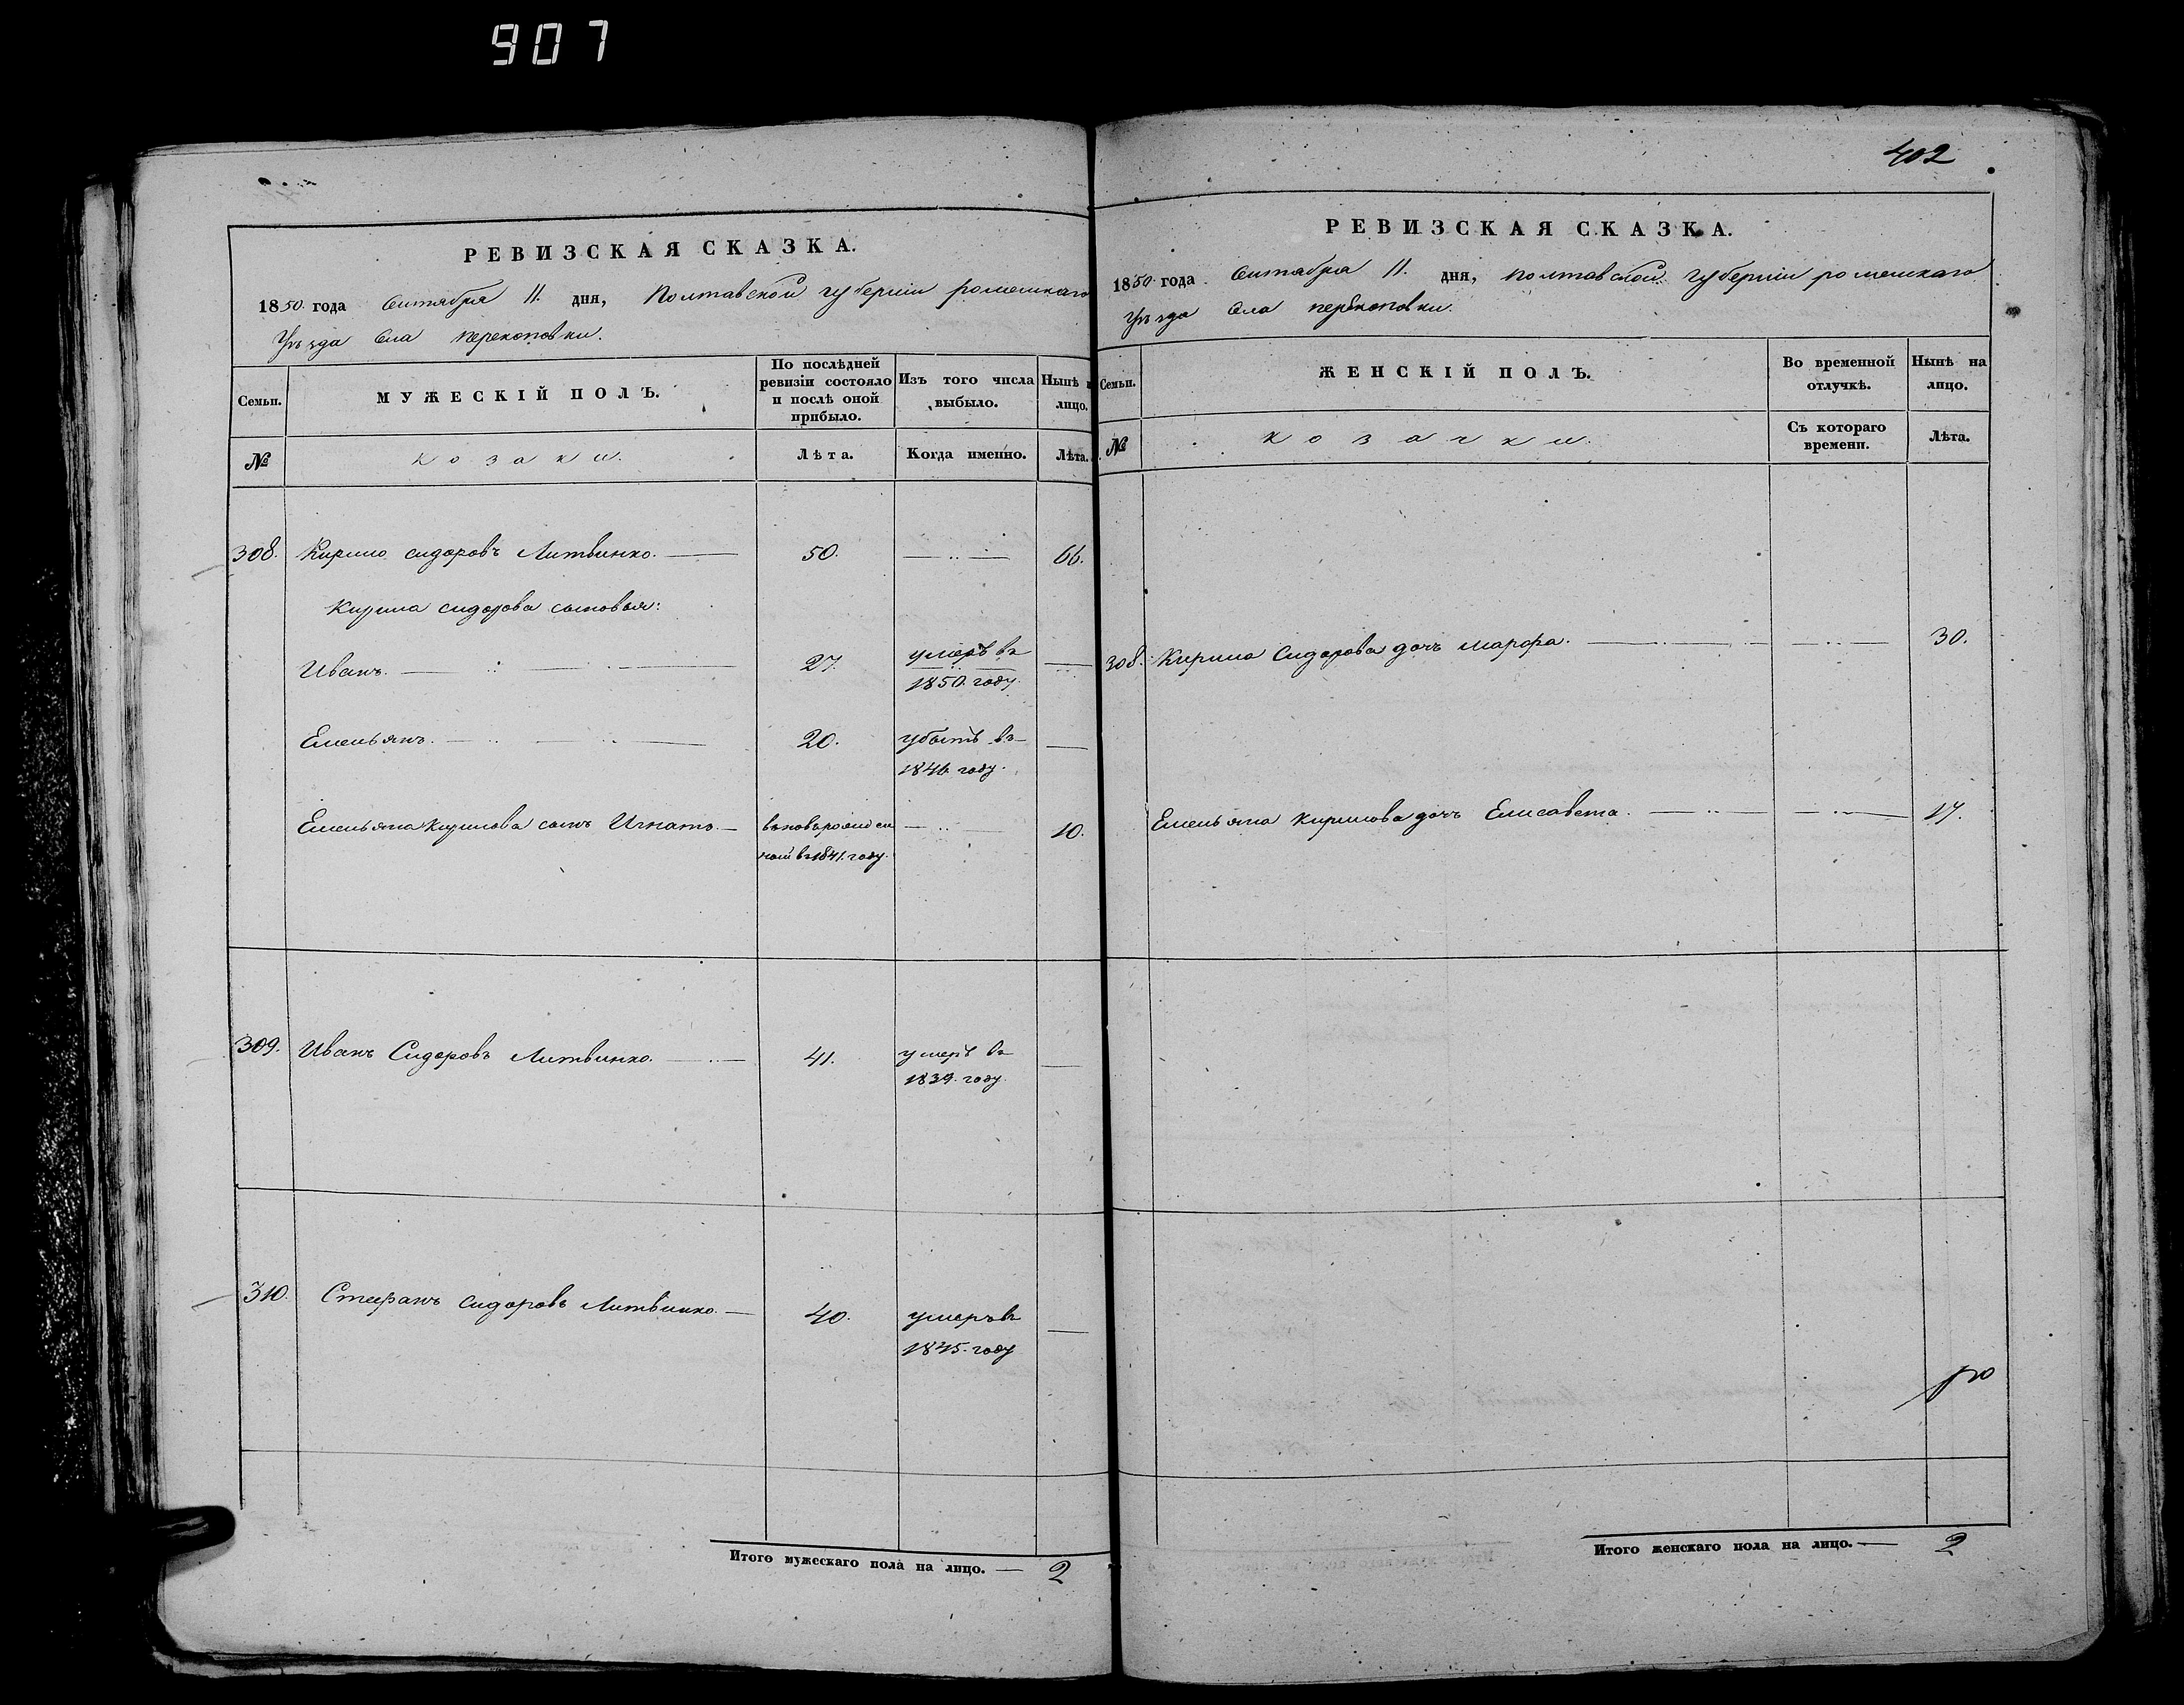 907
РЕВИЗСКАЯ СКАЗКА.
1850. года Сентября 11. дня, Полтавской губерніи роменскаго
Уѣзда Села перекоповки.
Семьи.
МУЖЕСКІЙ ПОЛЪ.
По послѣдней ревизіи состояло и послѣ оной прибыло.
Изъ того числа выбыло.
Нынѣ на лицо.
№
козаки.
Лѣта.
Когда именно.
Лѣта.
308. Кирило сидоровъ Литвинко. 50. 66.
Кирила сидорова сыновья:
Иванъ. 27. умеръ въ
1850. году.
Емельянъ. 20. убытъ въ
1846 году.
Емельяна кирилова сынъ Игнатъ. вновьрожден 10.
ной въ 1841. году.
309. Иванъ Сидоровъ Литвинко. 41. умеръ въ
1839. году.
310. Стефанъ сидоровъ Литвинко. 40. умеръ въ
1845. году
Итого мужескаго пола на лицо. — 2
402
РЕВИЗСКАЯ СКАЗКА.
1850 года Сентября 11. дня, полтавской губерніи роменскаго
Уѣзда Села перекоповки.
Семьи.
ЖЕНСКІЙ ПОЛЪ.
Во временной отлучкѣ.
Нынѣ на лицо.
№
козачки.
Съ котораго времени.
Лѣта.
308. Кирила Сидорова дочь марфа. 30.
Емельяна кирилова дочь Елисавета. 17.
Итого женскаго пола на лицо. — 2